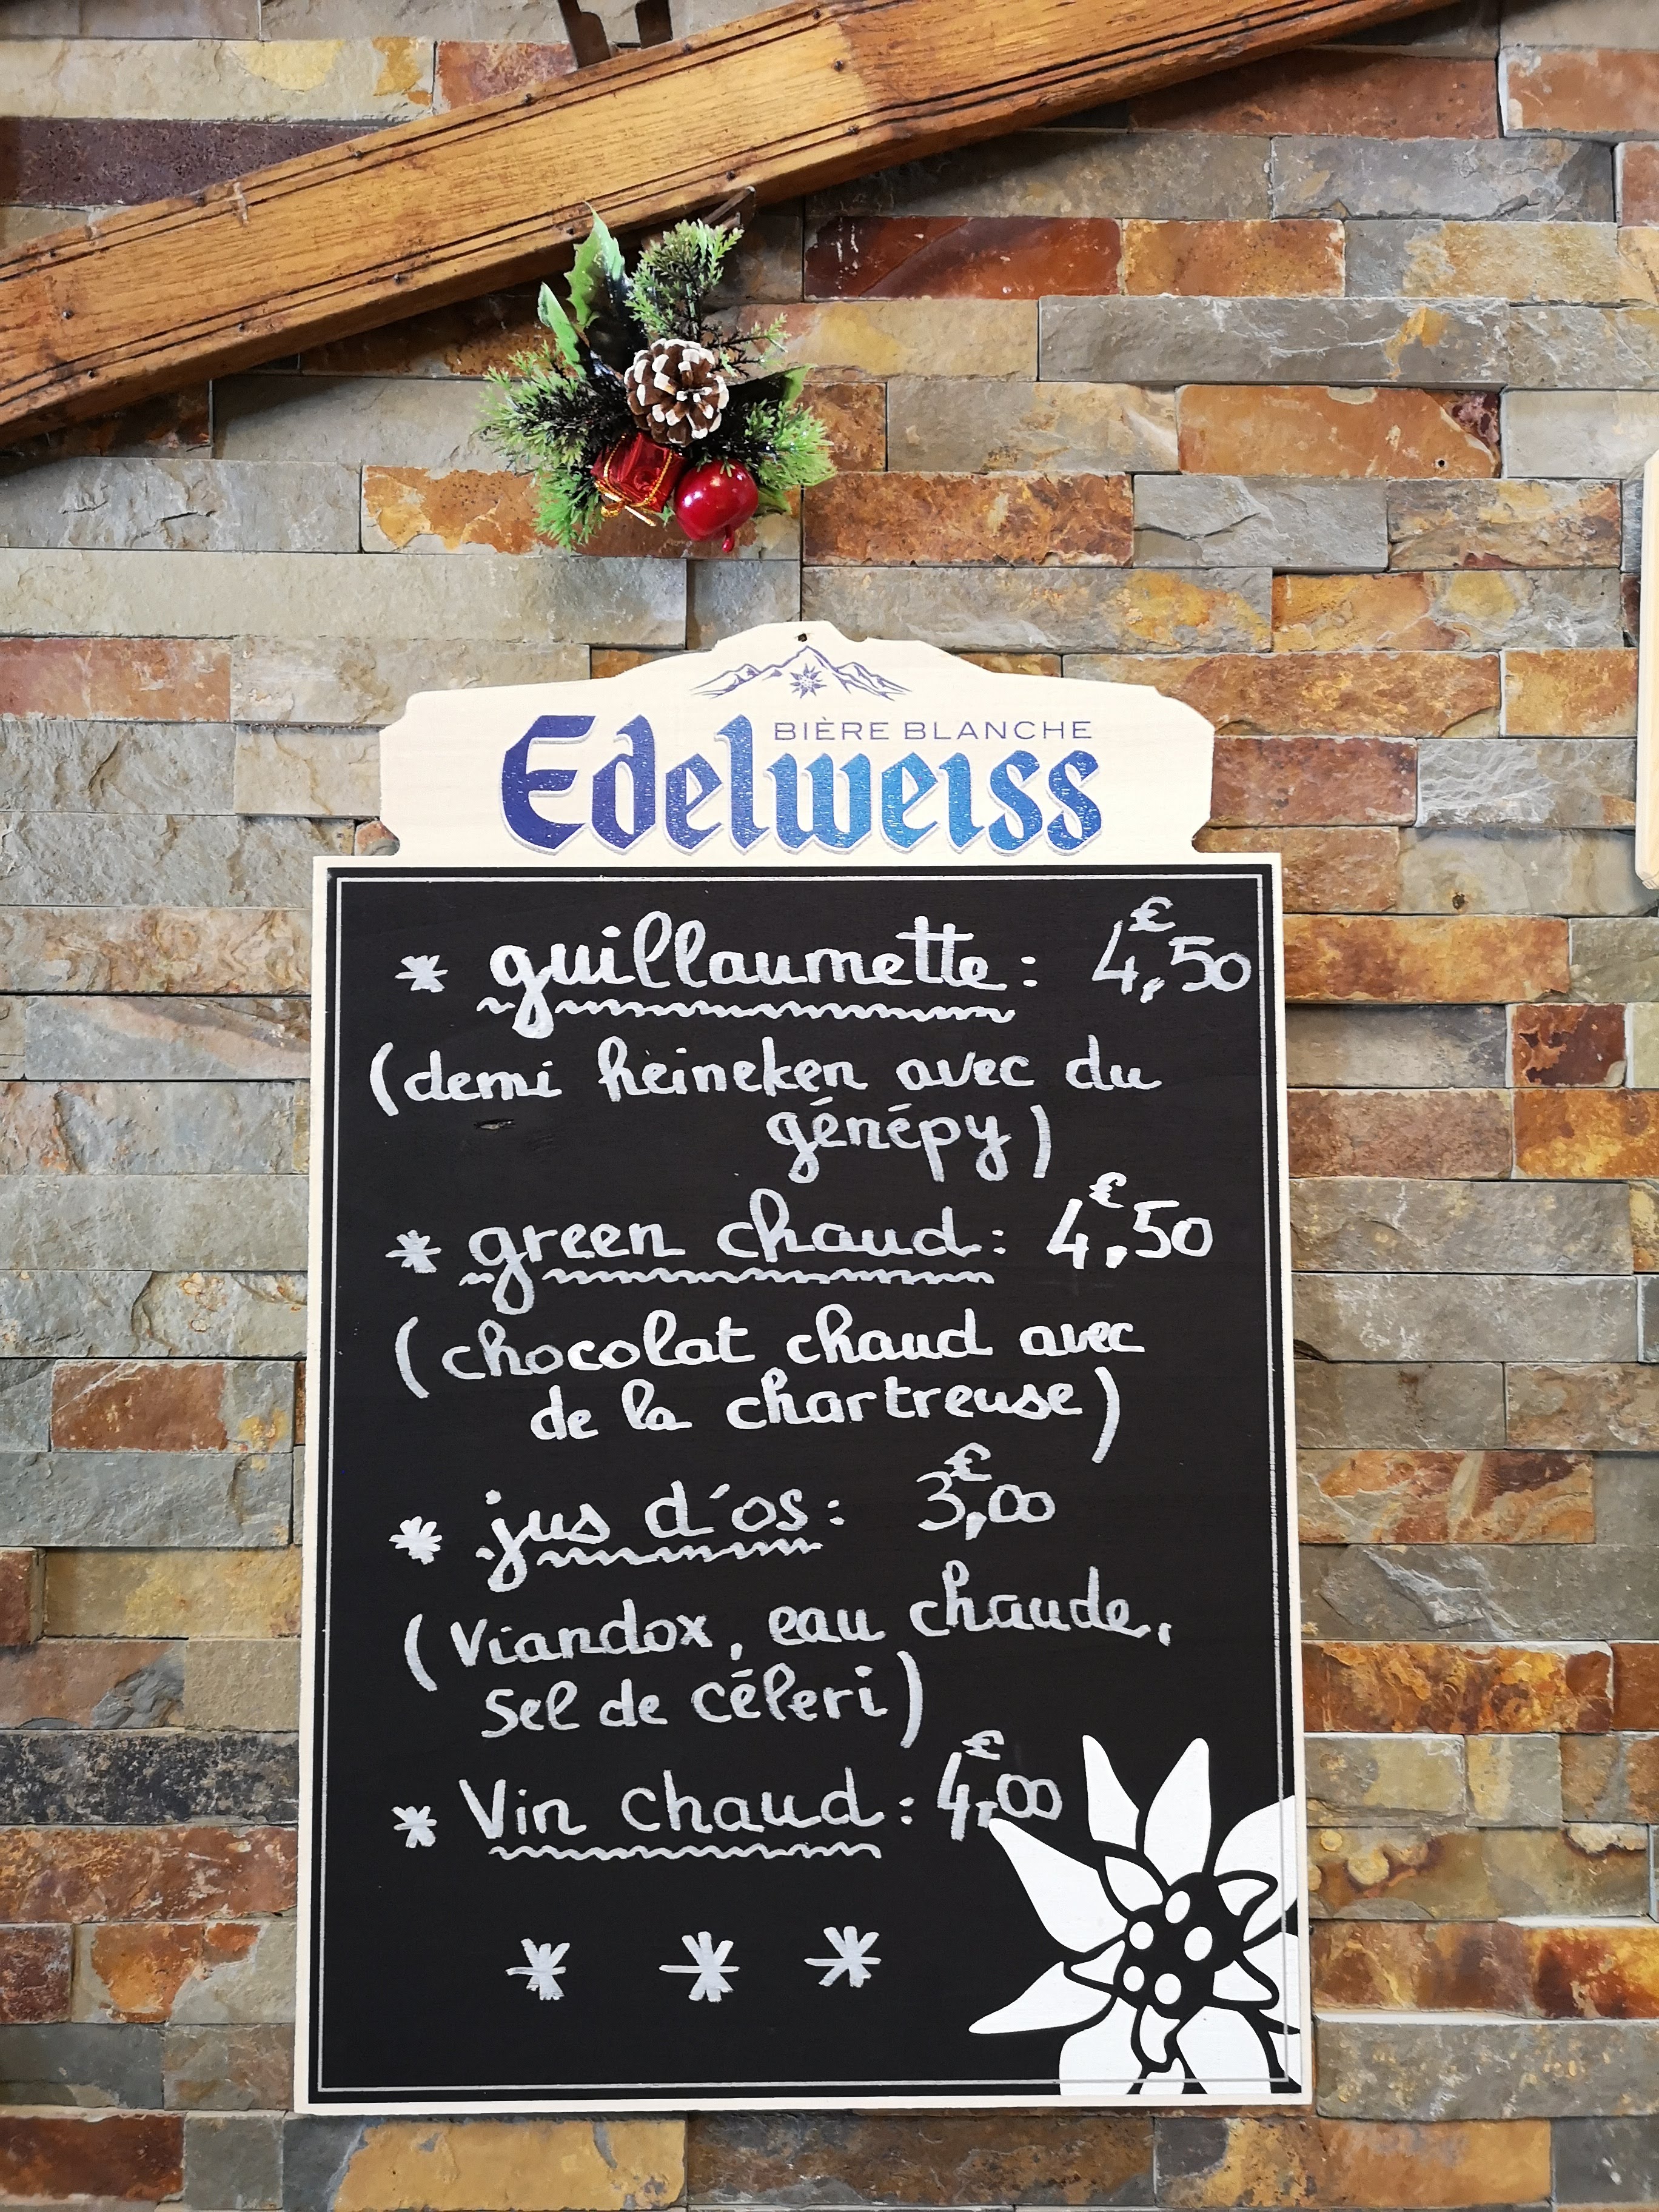 BIÈRE BLANCHE
Edelweiss
* guillaumette : 4,€50
(demi heineken avec du
génépy)
* green chaud : 4,€50
(chocolat chaud avec
de la chartreuse)
* jus d'os : 3,€00
(Viandox, eau chaude,
Sel de céleri)
* Vin chaud : 4,€00
* * *